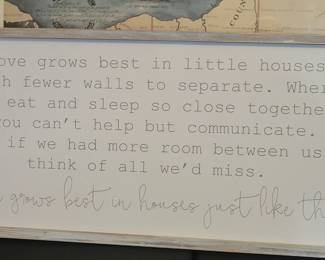 COUN
ove grows best in little houses
h fewer walls to separate. Wher
eat and sleep so close togethe
you can't help but communicate.
if we had more room between us
think of all we'd miss.
grows best in houses just like th